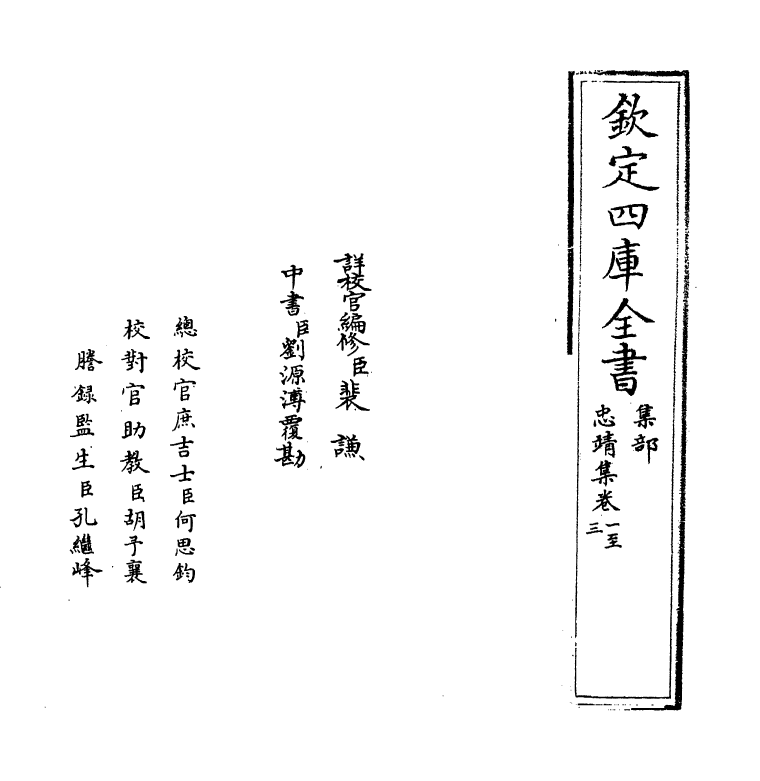 欽定四庫全書
集部
忠靖集卷一至三
詳校官編修臣裴謙
中書臣劉源溥覆勘
總校官庶吉士臣何思鈞
校對官助教臣胡予襄
謄録監生臣孔繼峰